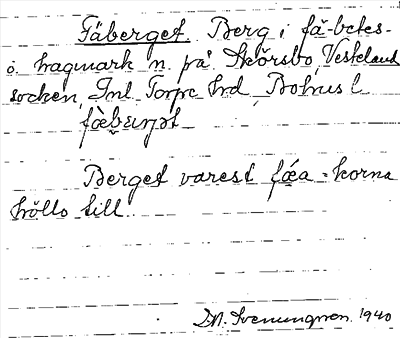 Fäberget. Berg i fä-betes-
o. hagmark n. på Skörsbo, Veskeland
socken, Inl. Torpe hrd, Bohus l
Berget varest fœa-korna
höllo till
D.A. Svenungsson. 1940